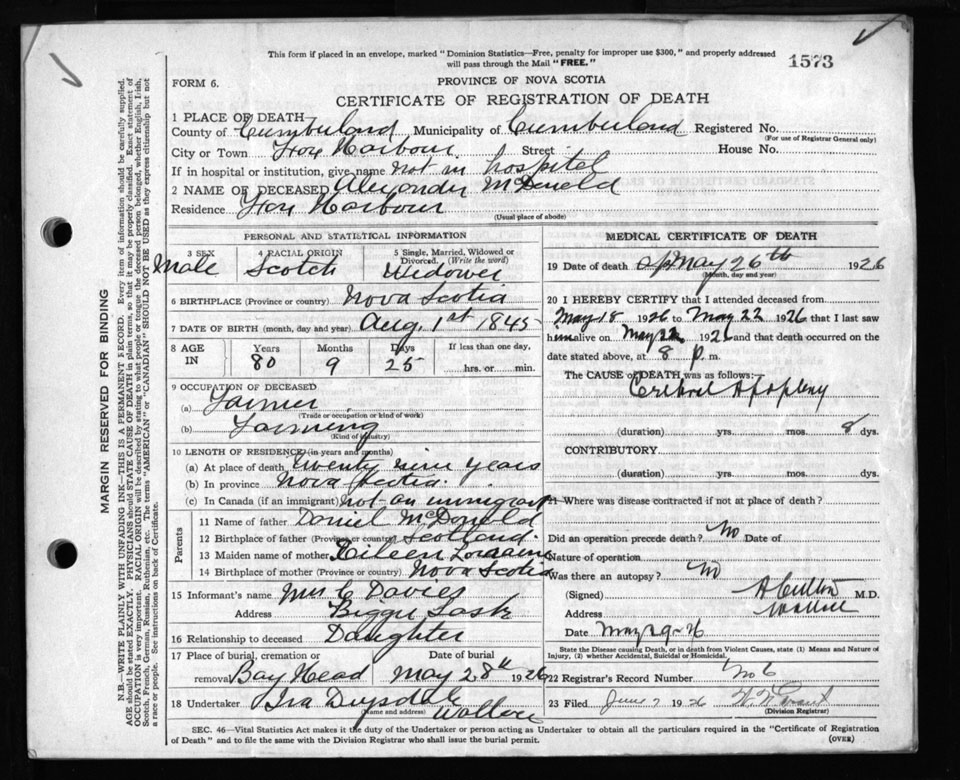 This form if placed in an envelope, marked "Dominion Statistics—Free, penalty for improper use $300," and properly addressed
will pass through the Mail "FREE."
1573
FORM 6.
PROVINCE OF NOVA SCOTIA
CERTIFICATE OF REGISTRATION OF DEATH
1 PLACE OF DEATH
County of Cumberland Municipality of Cumberland Registered No.
(For use of Registrar General only)
City or Town Fox Harbour Street House No.
If in hospital or institution, give name not in hospital
2 NAME OF DECEASED Alexander McDonald
Residence Fox Harbour
(Usual place of abode)
PERSONAL AND STATISTICAL INFORMATION
3 SEX 4 RACIAL ORIGIN 5 Single, Married, Widowed or
Divorced. (Write the word)
Male Scotch Widower
6 BIRTHPLACE (Province or country) Nova Scotia
7 DATE OF BIRTH (month, day and year) Aug 1st 1845
8 AGE IN Years Months Days If less than one day,
80 9 25 hrs. or min.
9 OCCUPATION OF DECEASED
(a) Farmer
(Trade or occupation or kind of work)
(b) Farming
(Kind of industry)
10 LENGTH OF RESIDENCE (in years and months)
(a) At place of death twenty nine years
(b) In province Nova Scotia
(c) In Canada (if an immigrant) not an immigrant
Parents
11 Name of father Daniel McDonald
12 Birthplace of father (Province or country) Scotland
13 Maiden name of mother Eileen
14 Birthplace of mother (Province or country) Nova Scotia
15 Informant's name Mrs C Davies
Address Biggar Sask
16 Relationship to deceased Daughter
17 Place of burial, cremation or Date of burial
removal Bay Head May 28th 1926
18 Undertaker Ira Drysdale
(Name and address) Wallace
MEDICAL CERTIFICATE OF DEATH
19 Date of death May 26th 1926
(Month, day and year)
20 I HEREBY CERTIFY that I attended deceased from
May 18 1926 to May 22 1926 that I last saw
him alive on May 22 1926 and that death occurred on the
date stated above, at 8 p. m.
The CAUSE OF DEATH was as follows:
Cerebral Apoplexy
(duration) yrs. mos. 8 dys.
CONTRIBUTORY
(duration) yrs. mos. dys.
21 Where was disease contracted if not at place of death?
Did an operation precede death? No Date of
Nature of operation
Was there an autopsy? No
(Signed) M.D.
Address Wallace
Date May 29-26
State the Disease causing Death, or in death from Violent Causes, state (1) Means and Nature of
Injury, (2) whether Accidental, Suicidal or Homicidal.
22 Registrar's Record Number No 6
23 Filed June 7 1926
(Division Registrar)
SEC. 46—Vital Statistics Act makes it the duty of the Undertaker or person acting as Undertaker to obtain all the particulars required in the "Certificate of Registration
of Death" and to file the same with the Division Registrar who shall issue the burial permit. (OVER)
MARGIN RESERVED FOR BINDING
N.B.—WRITE PLAINLY WITH UNFADING INK—THIS IS A PERMANENT RECORD. Every item of information should be carefully supplied.
AGE should be stated EXACTLY. PHYSICIANS should STATE CAUSE OF DEATH in plain terms, so that it may be properly classified. Exact statement of
OCCUPATION is very important. RACIAL ORIGIN will be described by stating to what people or tongue the deceased person belonged, whether English, Irish,
Scotch, French, German, Russian, Ruthenian, etc. The terms "AMERICAN" or "CANADIAN" SHOULD NOT BE USED as they express citizenship but not
a race or people. See instructions on back of Certificate.